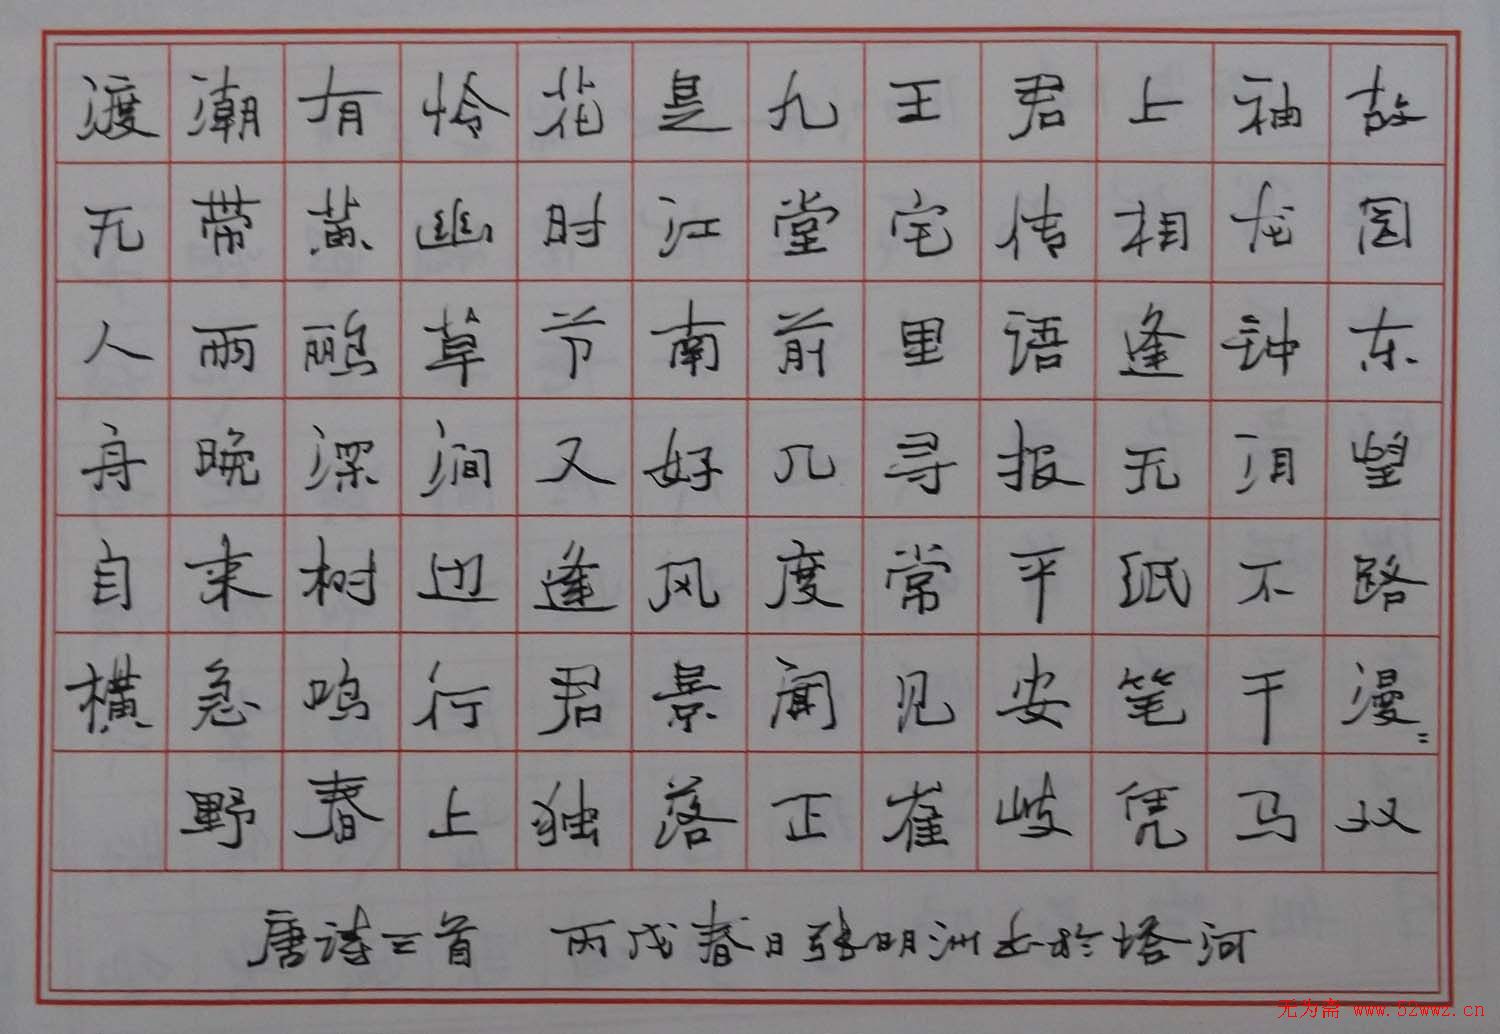 故园东望路漫=双
袖龙钟泪不干马
上相逢无纸笔凭
君传语报平安岐
王宅里寻常见崔
九堂前几度闻正
是江南好风景落
花时节又逢君独
怜幽草涧边行上
有黄鹂深树鸣春
潮带雨晚来急野
渡无人舟自横
唐诗三首 丙戌春日张明洲书於塔河
无为斋 www.52wwz.cn